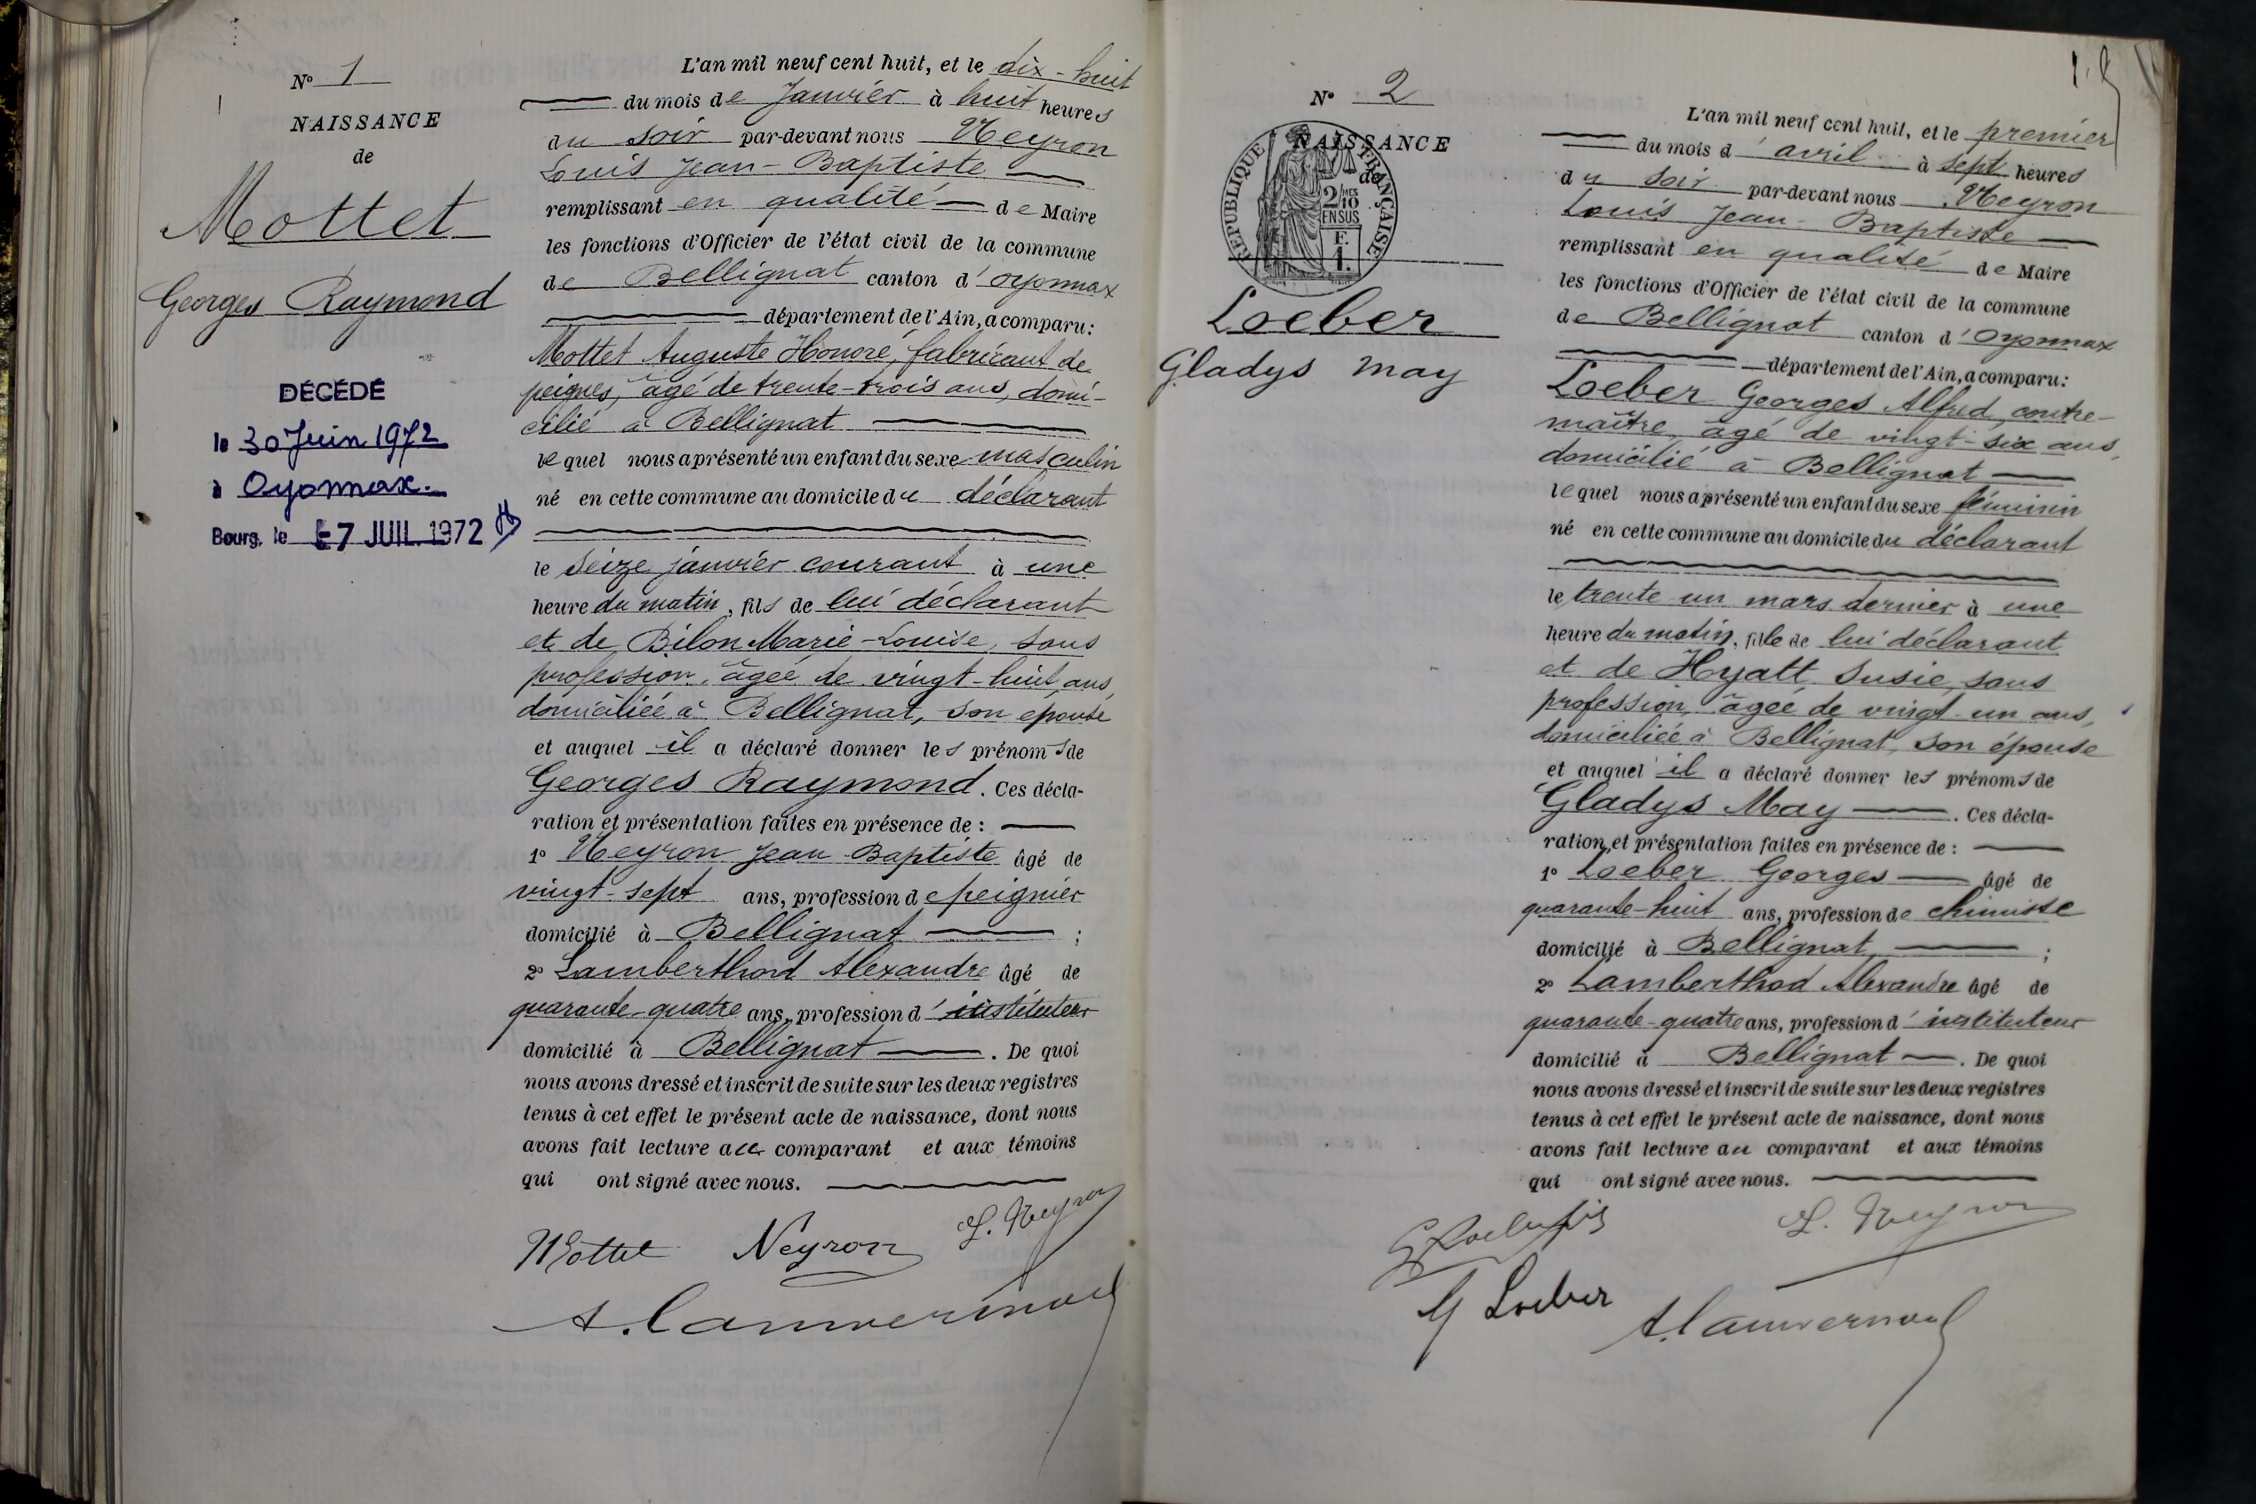 N° 1
NAISSANCE
de
Mottet
Georges Raymond
DÉCÉDÉ
le 30 Juin 1972
à Oyonnax.
Bourg, le -7 JUIL. 1972
L'an mil neuf cent huit, et le dix-huit
du mois de Janvier à huit heures
du soir par-devant nous Neyron
Louis Jean-Baptiste
remplissant en qualité de Maire
les fonctions d'Officier de l'état civil de la commune
de Bellignat canton d'Oyonnax
département de l'Ain, a comparu:
Mottet Auguste Honoré, fabricant de
peignes, âgé de trente-trois ans, domi-
cilié à Bellignat
lequel nous a présenté un enfant du sexe masculin
né en cette commune au domicile du déclarant
le seize janvier courant à une
heure du matin, fils de lui déclarant
et de Bilon Marie-Louise, sans
profession, âgée de vingt-huit ans,
domiciliée à Bellignat, son épouse
et auquel il a déclaré donner les prénoms de
Georges Raymond. Ces décla-
ration et présentation faites en présence de:
1° Neyron Jean Baptiste âgé de
vingt-sept ans, profession de peignier
domicilié à Bellignat ;
2° Lamberthod Alexandre âgé de
quarante-quatre ans, profession d'instituteur
domicilié à Bellignat. De quoi
nous avons dressé et inscrit de suite sur les deux registres
tenus à cet effet le présent acte de naissance, dont nous
avons fait lecture au comparant et aux témoins
qui ont signé avec nous.
Mottet Neyron L. Neyron
N° 2
NAISSANCE
de
RÉPUBLIQUE FRANÇAISE
2/10 MES
EN SUS
F.
1.
Loeber
Gladys May
L'an mil neuf cent huit, et le premier
du mois d'avril à sept heures
du soir par-devant nous Neyron
Louis Jean-Baptiste
remplissant en qualité de Maire
les fonctions d'Officier de l'état civil de la commune
de Bellignat canton d'Oyonnax
département de l'Ain, a comparu:
Loeber Georges Alfred, contre-
maître, âgé de vingt-six ans,
domicilié à Bellignat
lequel nous a présenté un enfant du sexe féminin
né en cette commune au domicile du déclarant
le trente un mars dernier à une
heure du matin, fille de lui déclarant
et de Hyatt Susie, sans
profession, âgée de vingt-un ans,
domiciliée à Bellignat, son épouse
et auquel il a déclaré donner les prénoms de
Gladys May. Ces décla-
ration et présentation faites en présence de:
1° Loeber Georges âgé de
quarante-huit ans, profession de chimiste
domicilié à Bellignat ;
2° Lamberthod Alexandre âgé de
quarante-quatre ans, profession d'instituteur
domicilié à Bellignat. De quoi
nous avons dressé et inscrit de suite sur les deux registres
tenus à cet effet le présent acte de naissance, dont nous
avons fait lecture au comparant et aux témoins
qui ont signé avec nous.
L. Neyron
G Loeber